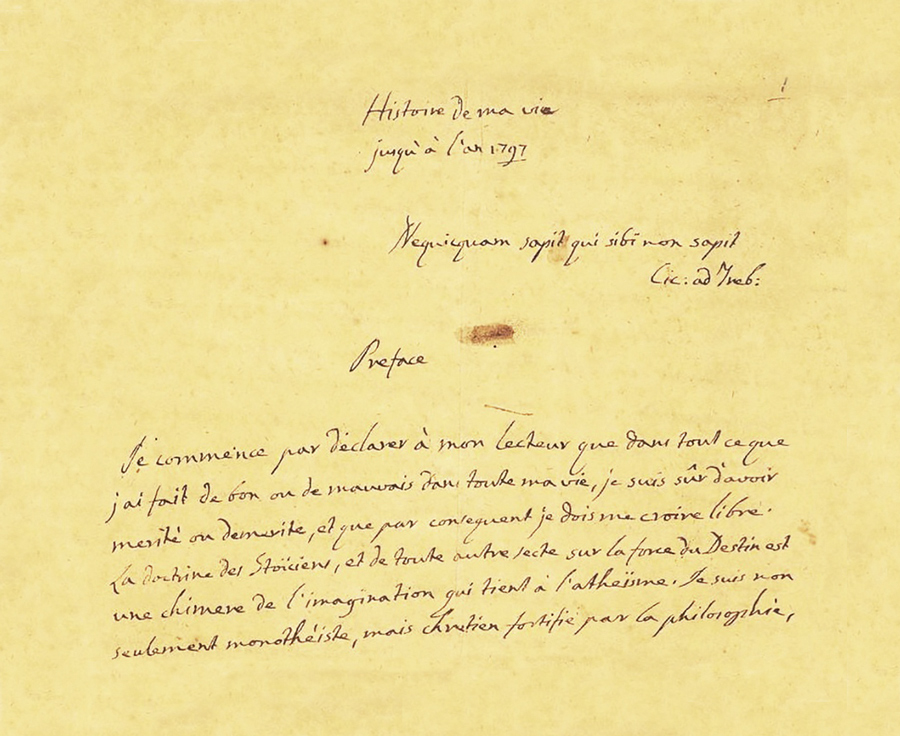 1
Histoire de ma vie
jusqu'à à l'an 1797
Nequicquam sapit qui sibi non sapit
Cic: ad Treb:
Preface
Je commence par déclarer à mon lecteur que dans tout ce que
j'ai fait de bon ou de mauvais dans toute ma vie, je suis sûr d'avoir
merité ou demerite, et que par consequent je dois me croire libre.
La doctrine des Stoïciens, et de toute autre secte sur la force du Destin est
une chimere de l'imagination qui tient à l'atheïsme. Je suis non
seulement monothéiste, mais chretien fortifié par la philosophie,